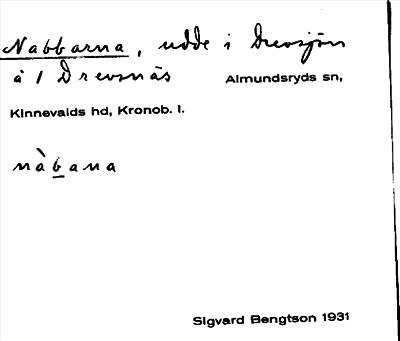 Nabbarna, udde i Drevsjön
å 1 Drevsnäs Almundsryds sn,
Kinnevalds hd, Kronob. l.
nàbana
Sigvard Bengtson 1931